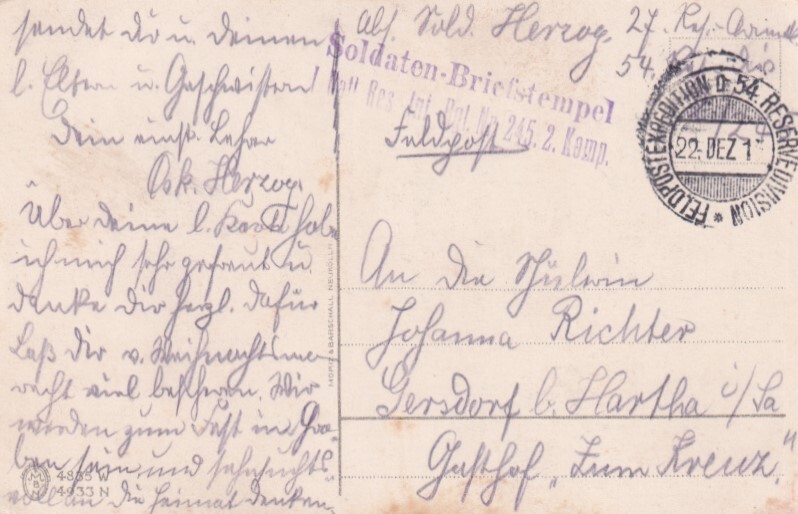 sendet dir u. deinen
l. Eltern u. Geschwistern
Dein einst. Lehrer
Osk. Herzog.
Über deine l. Karte hab
ich mich sehr gefreut u.
danke dir herzl. dafür
Laß dir v. Weihnachtsma
recht viel bescheren. Wir
werden zum Fest im Gra-
ben sein und sehnsuchts-
voll an die Heimat denken.
Abs. Sold. Herzog. 27. Res.
54.
Soldaten-Briefstempel
Res. Inf. Rgt. Nr. 245. 2. Komp.
Feldpost
FELDPOSTEXPEDITION D. 54. RESERVEDIVISION *
22. DEZ 1
An die Schülerin
Johanna Richter
Gersdorf b. Hartha i/Sa
Gasthof „Zum Kreuz."
MORITZ & BARSCHALL NEUKÖLLN
4835 W
4933 N